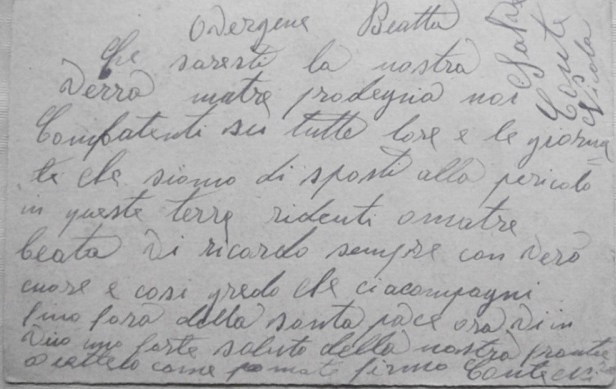 O Vergene Beatta
che saresti la nostra
Verra matre prodegna noi
Combatenti su tutte lore e le giorna
te che siamo di sposti alla pericolo
in queste terre ridenti o matre
beata Vi ricordo sempre con Vero
cuore e cosi gredo che ciacompagni
fino lora della santa pace ora Vi in
Vio uno forte saluto della nostra fronte
firmo Conte
Conte
Nicola